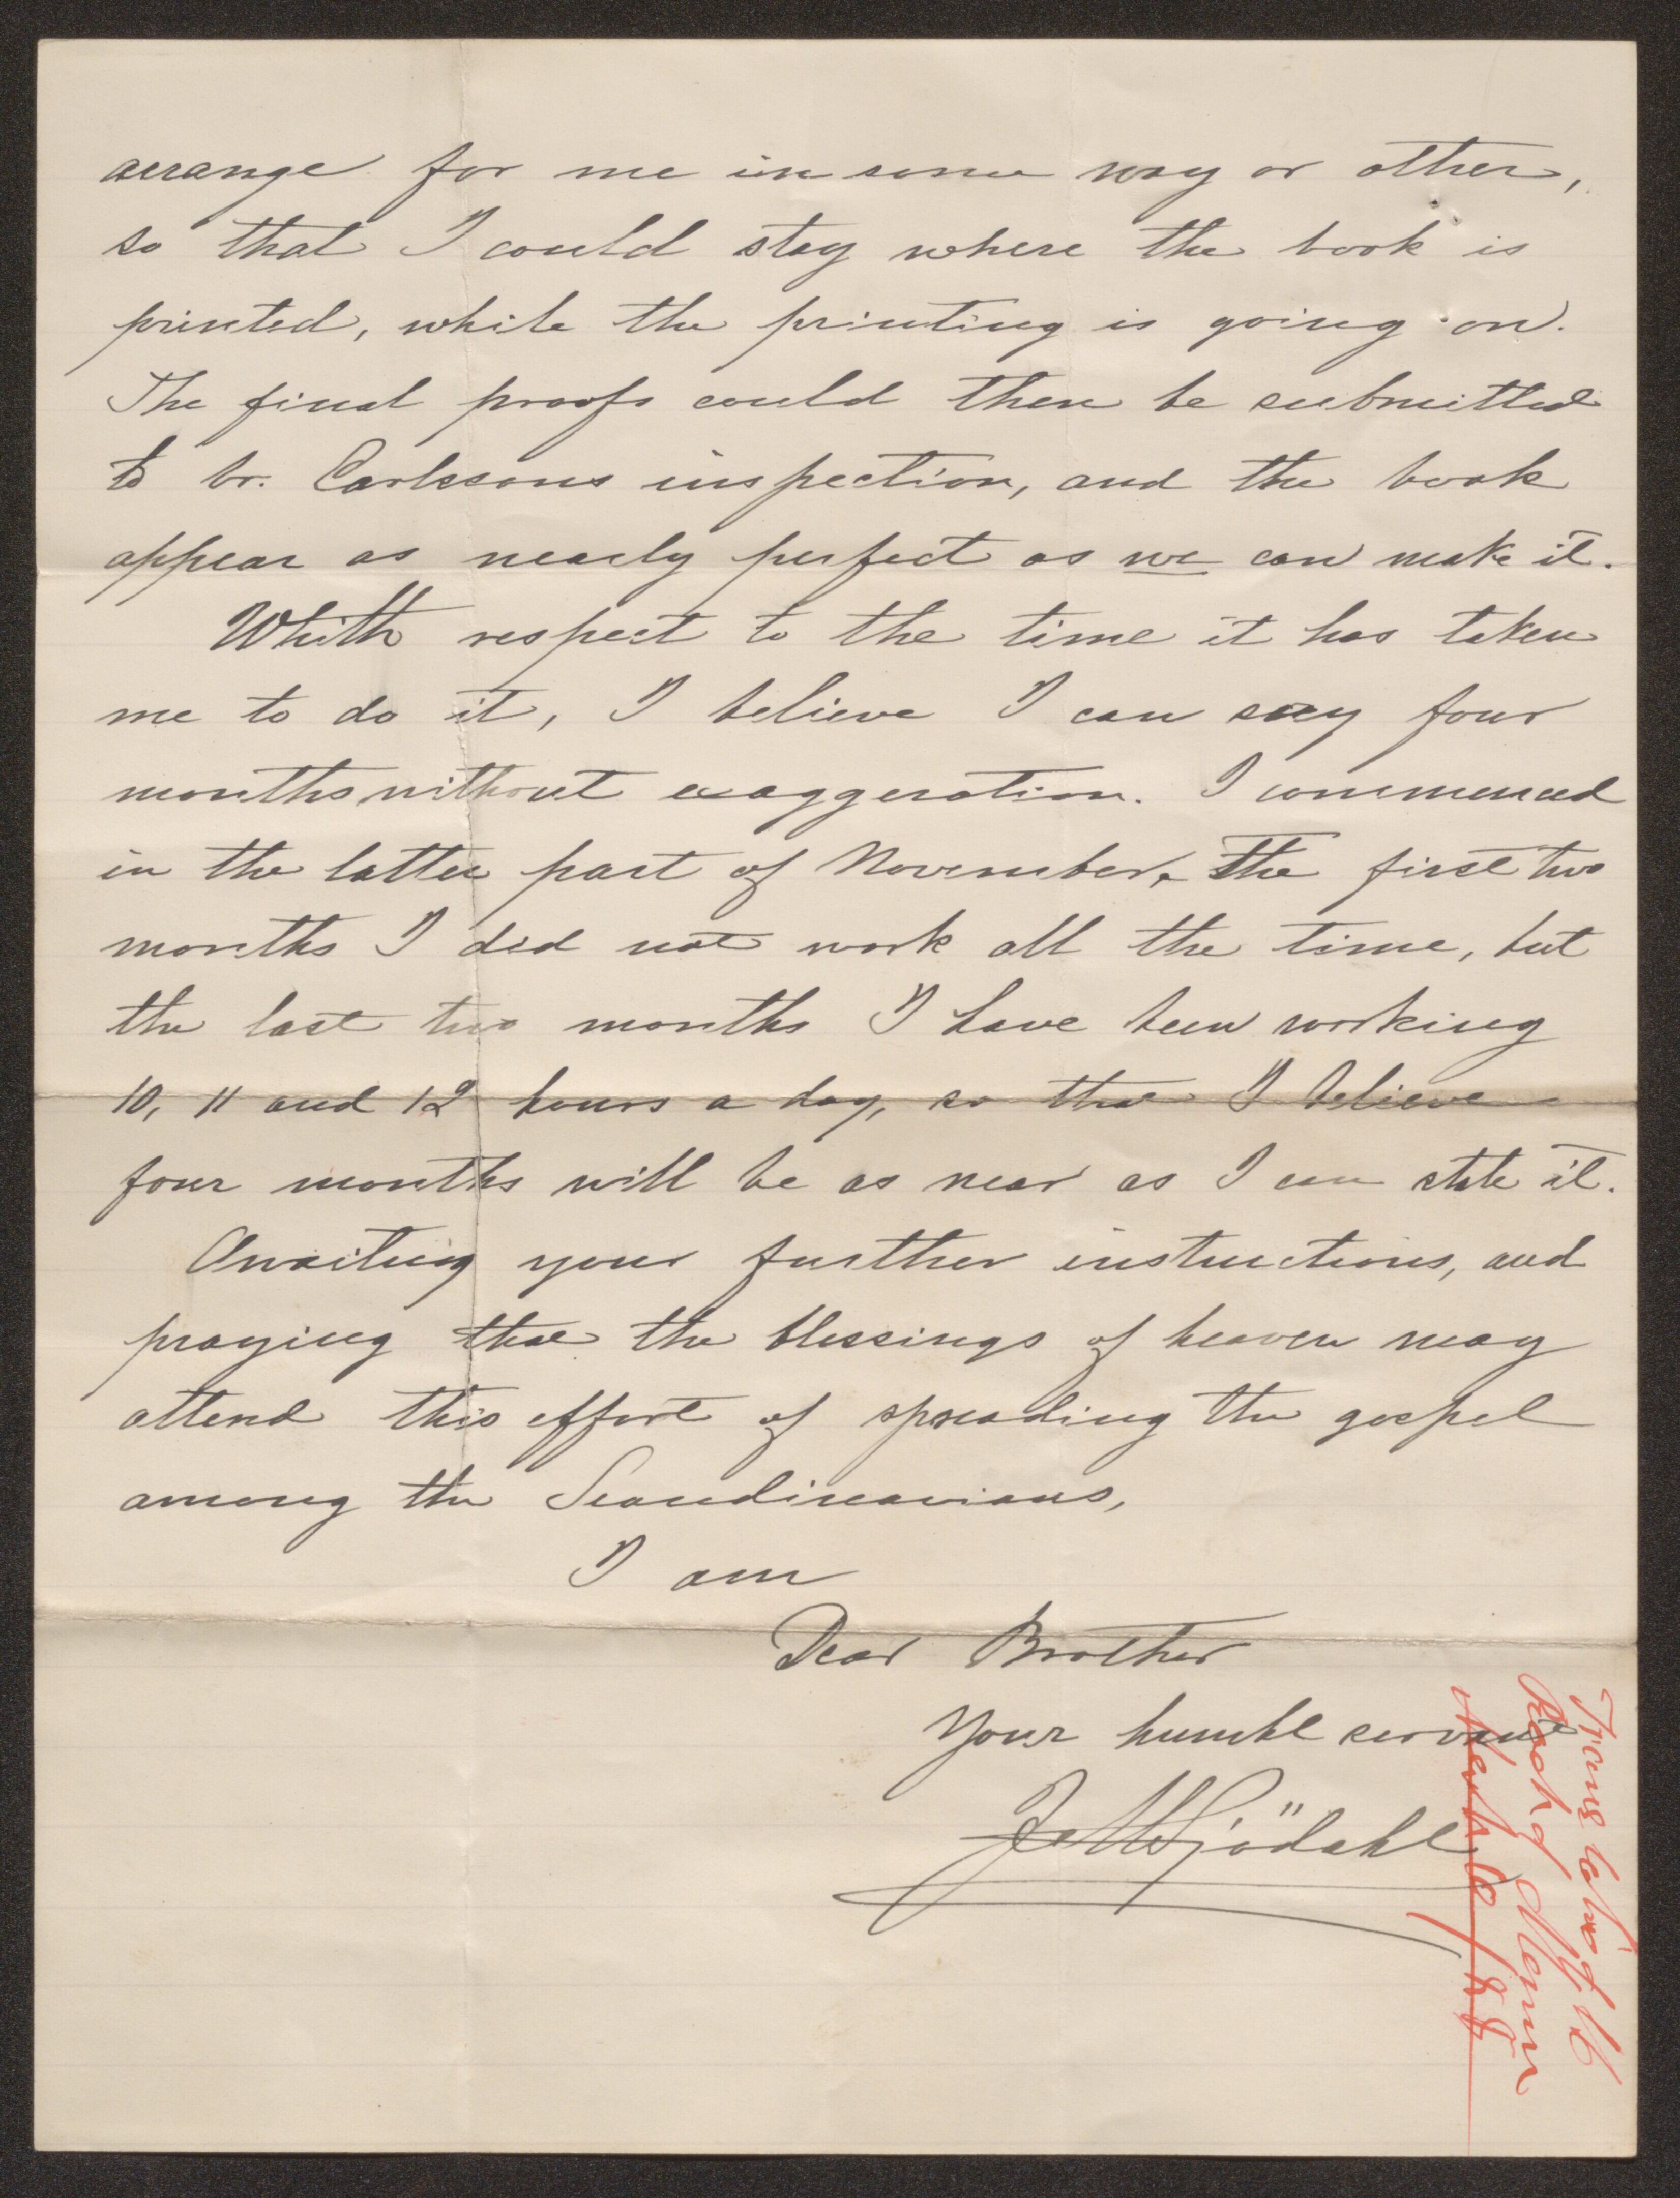 arrange for me in some way or other,
so that I could stay where the book is
printed, while the printing is going on.
The final proofs could then be submitted
to br. Carlssons inspection, and the book
appear as nearly perfect as we can make it.
Whith respect to the time it has taken
me to do it, I believe I can say four
months without exaggeration. I commenced
in the latter part of November. The first two
months I did not work all the time, but
the last two months I have been working
10, 11 and 12 hours a day, so that I believe
four months will be as near as I can state it.
Awaiting your further instructions, and
praying that the blessings of heaven may
attend this effort of spreading the gospel
among the Scandinavians,
I am
Dear Brother
Your humbl servant
J. M. Sjödahl
Translation of the
Book of Mormon